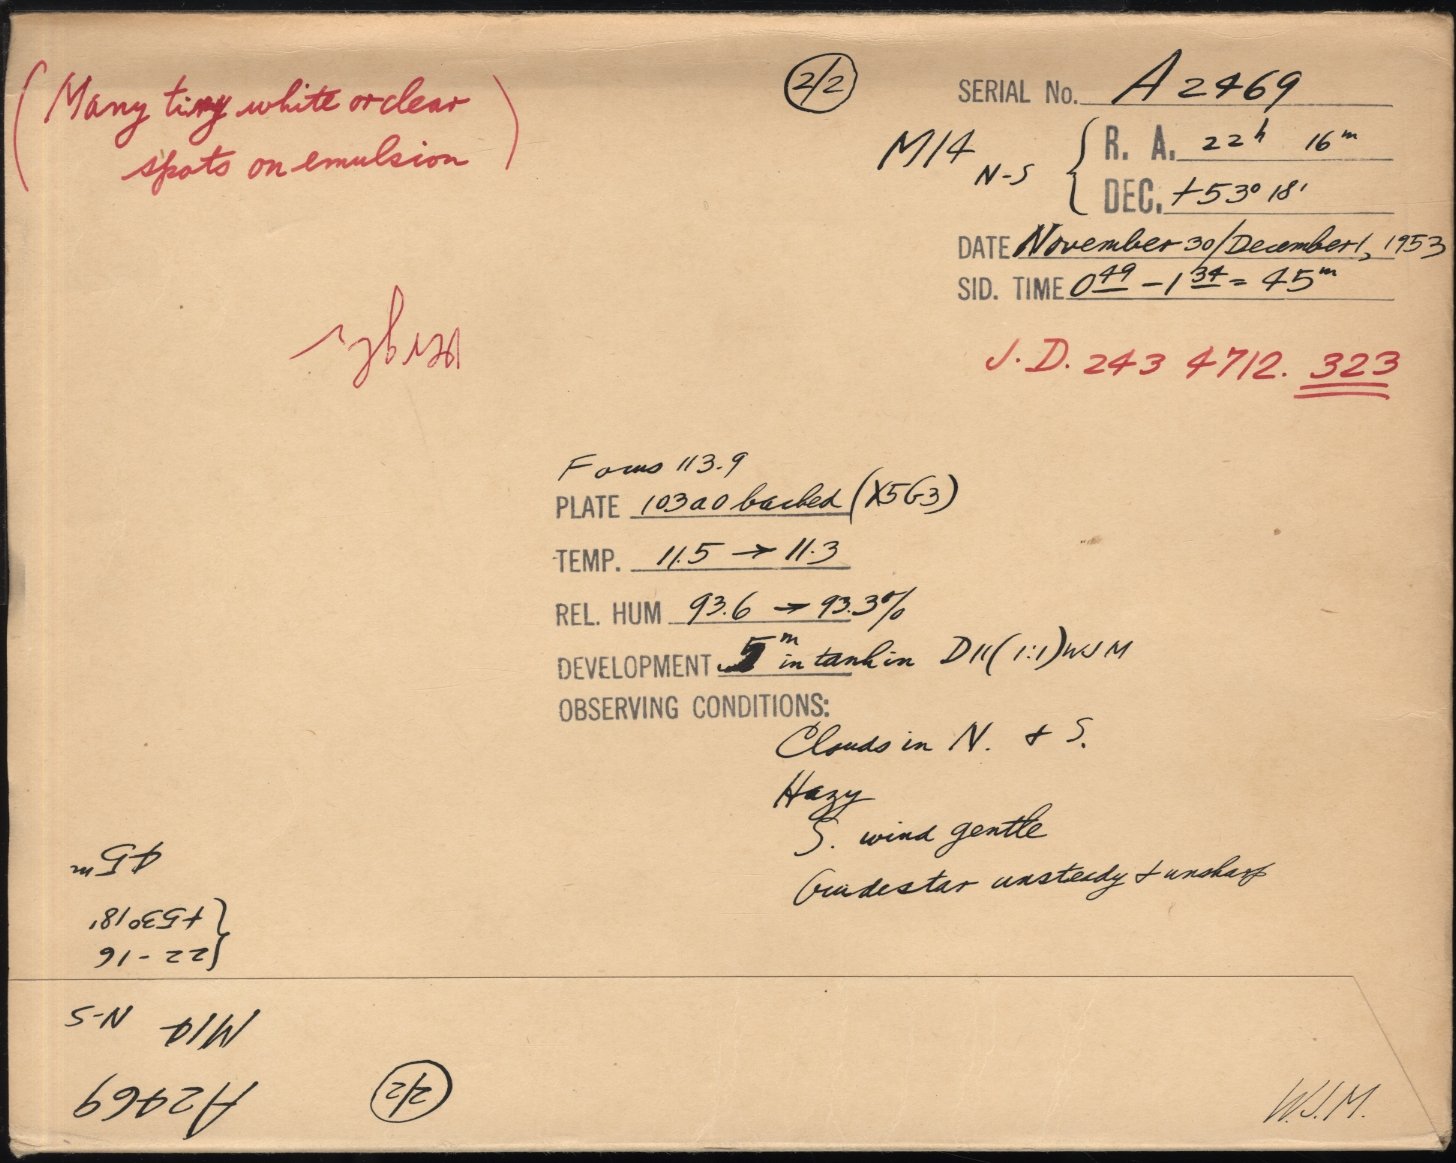 (Many tiny white or clear
spots on emulsion)
2/2
SERIAL No. A2469
M14 N-S { R. A. 22h 16m
DEC. +53° 18'
DATE November 30/December 1, 1953
SID. TIME 0 49 - 1 34 = 45m
J.D. 243 4712. 323
Focus 113.9
PLATE 103a0 backed (X5G3)
TEMP. 11.5 → 11.3
REL. HUM 93.6 → 93.3%
DEVELOPMENT 5m in tank in D11 (1:1) WJM
OBSERVING CONDITIONS:
Clouds in N. & S.
Hazy
S. wind gentle
Guidestar unsteady & unsharp
W.J.M.
A2469 2/2
M14 N-S
{22 - 16
+53° 18'
45m